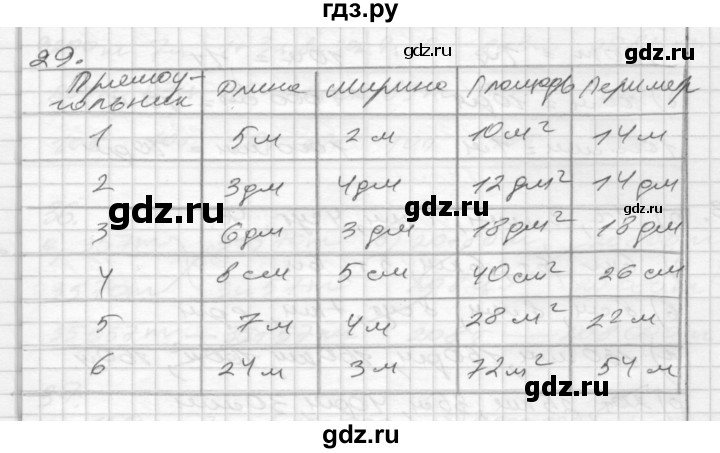 гдз.ру
29.
gdz.ru
Прямоу-
гольник Длина Ширина Площадь Пеример
1 5 м 2 м 10 м² 14 м
2 3 дм 4 дм 12 дм² 14 дм
gdz.ru gdz.ru gdz.ru
3 6 дм 3 дм 18 дм² 18 дм
4 8 см 5 см 40 см² 26 см
5 7 м 4 м 28 м² 22 м
6 24 м 3 м 72 м² 54 м
gdz.ru gdz.ru
gdz.ru